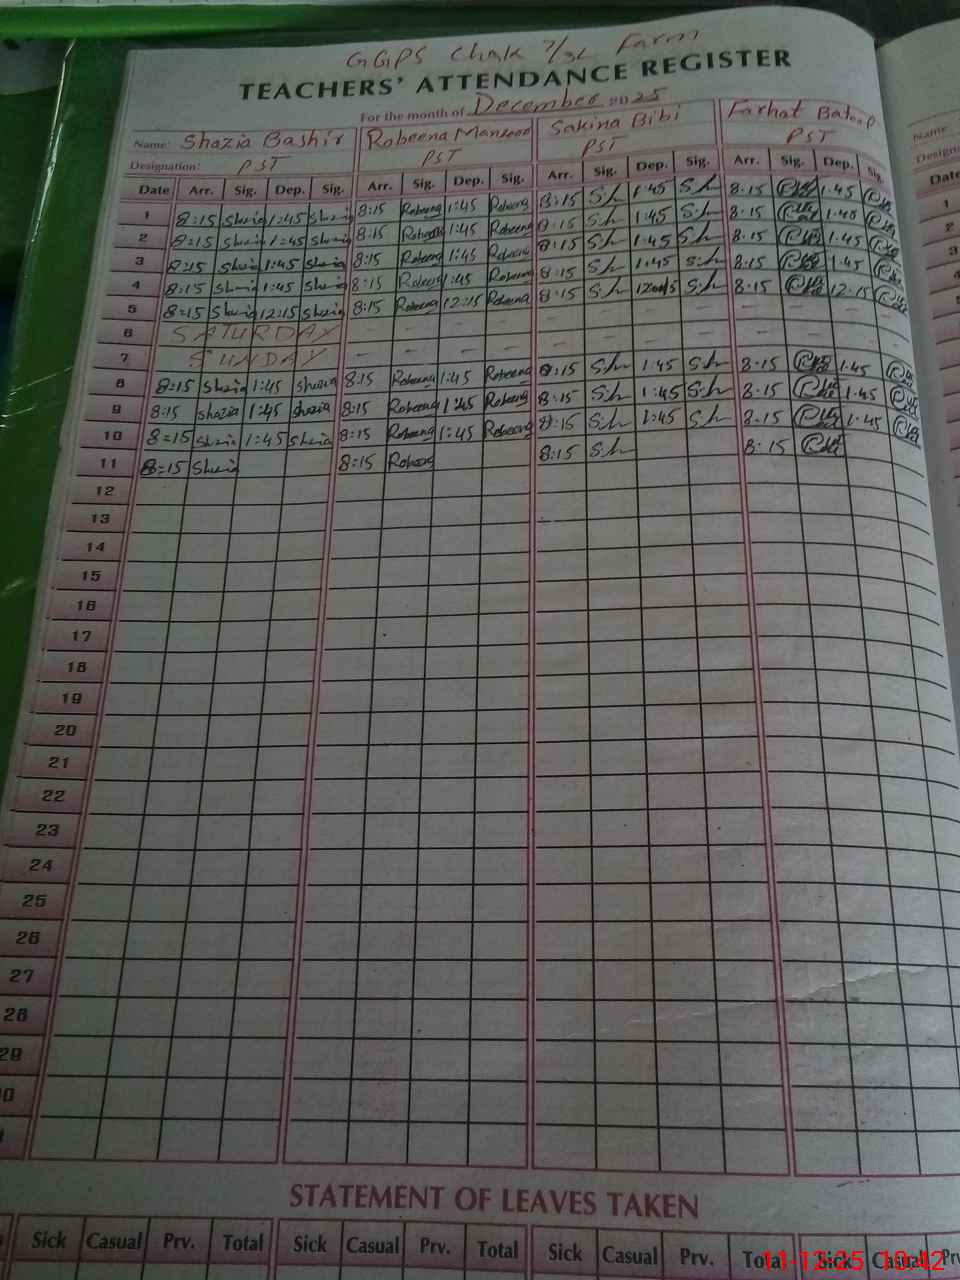 GGPS Chak 7/3L Farm
TEACHERS' ATTENDANCE REGISTER
For the month of December 2025
Name: Shazia Bashir Robeena Manzoor Sakina Bibi Farhat Batool
Designation: PST PST PST PST
Date Arr. Sig. Dep. Sig. Arr. Sig. Dep. Sig. Arr. Sig. Dep. Sig. Arr. Sig. Dep. Sig.
1 8:15 Shazia 1:45 Shazia 8:15 Robeena 1:45 Robeena 8:15 1:45 8:15 1:45
2 8:15 Shazia 1:45 Shazia 8:15 Robeena 1:45 Robeena 8:15 1:45 8:15 1:45
3 8:15 Shazia 1:45 Shazia 8:15 Robeena 1:45 Robeena 8:15 1:45 8:15 1:45
4 8:15 Shazia 1:45 Shazia 8:15 Robeena 1:45 Robeena 8:15 1:45 8:15 1:45
5 8:15 Shazia 12:15 Shazia 8:15 Robeena 12:15 Robeena 8:15 8:15 12:15
6 SATURDAY
7 SUNDAY
8 8:15 Shazia 1:45 Shazia 8:15 Robeena 1:45 Robeena 8:15 1:45 8:15 1:45
9 8:15 Shazia 1:45 Shazia 8:15 Robeena 1:45 Robeena 8:15 1:45 8:15 1:45
10 8=15 Shazia 1:45 Shazia 8:15 Robeena 1:45 Robeena 8:15 1:45 8:15 1:45
11 8=15 Shazia 8:15 Robeena 8:15 8:15
12
13
14
15
16
17
18
19
20
21
22
23
24
25
26
27
28
29
STATEMENT OF LEAVES TAKEN
Sick Casual Prv. Total Sick Casual Prv. Total Sick Casual Prv. Total Sick Casual
11-12-25 10:42